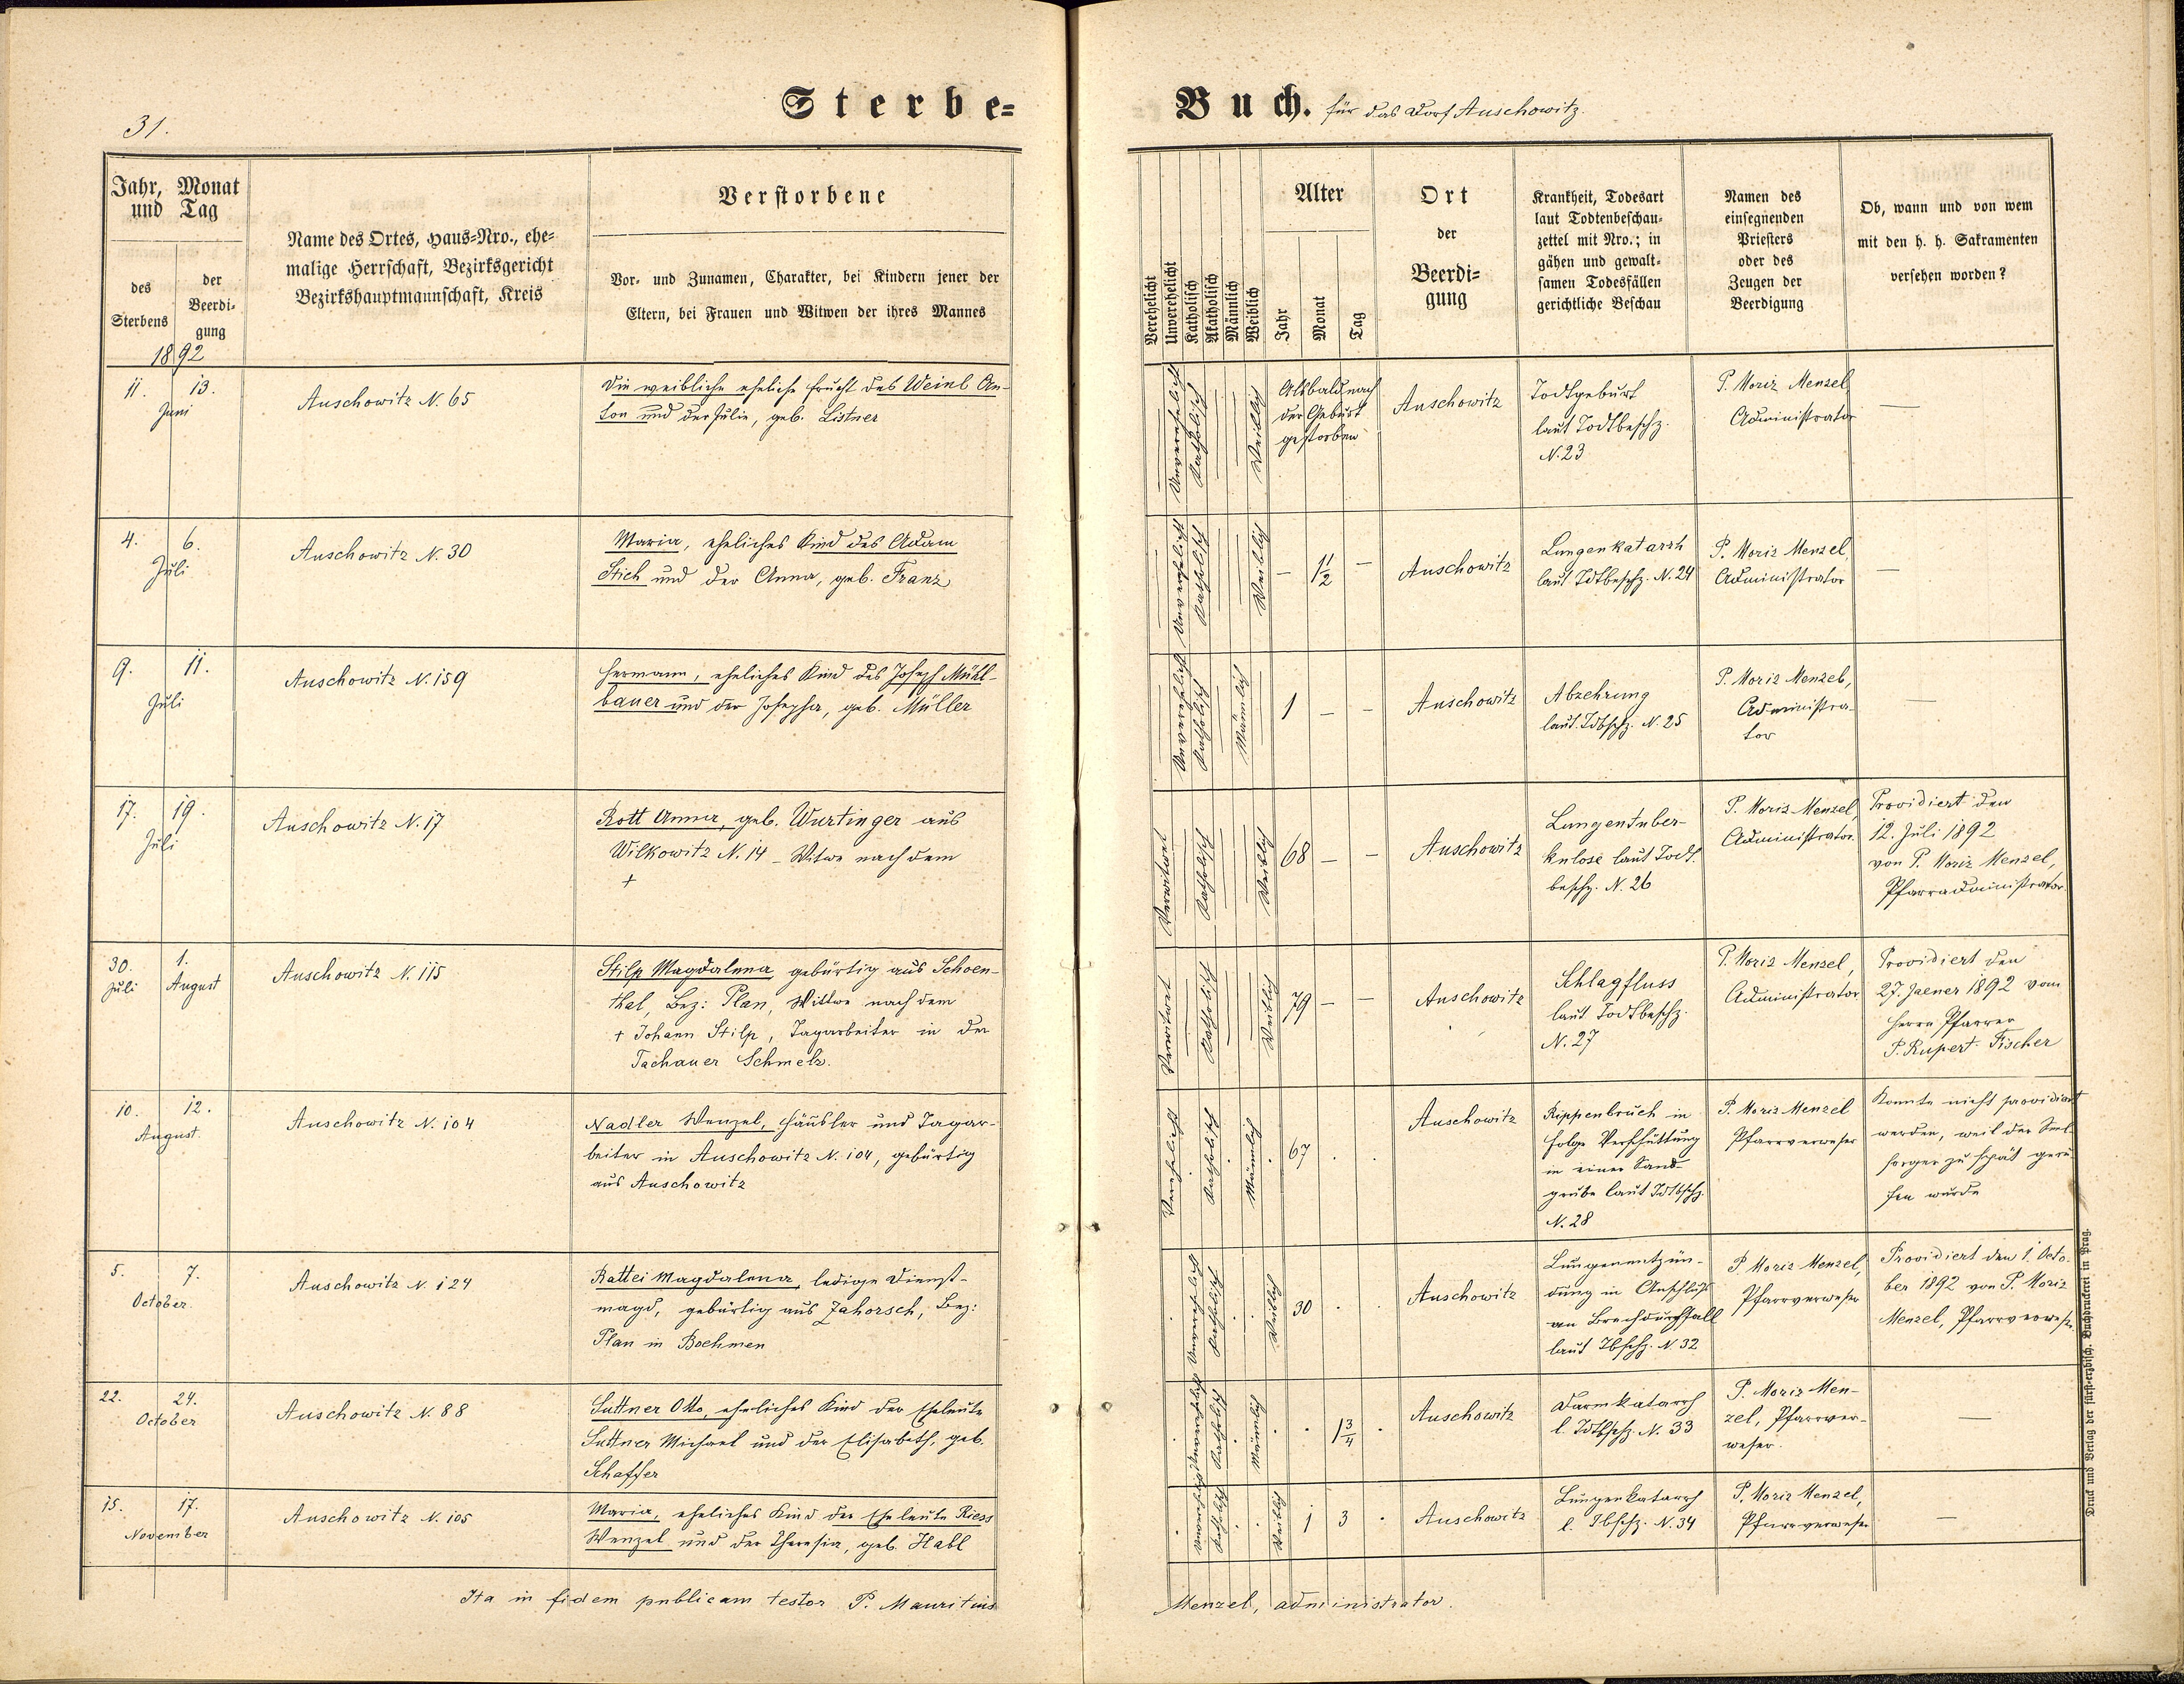 31.
Sterbe=
Jahr, Monat
und Tag
des
Sterbens
der
Beerdi=
gung
1892
Name des Ortes, Haus=Nro., ehe=
malige Herrschaft, Bezirksgericht
Bezirkshauptmannschaft, Kreis
Verstorbene
Vor= und Zunamen, Charakter, bei Kindern jener der
Eltern, bei Frauen und Witwen der ihres Mannes
11. 13.
Juni
Auschowitz N. 65
Die weibliche eheliche Frucht des Weinl An-
ton und der Julie, geb. Listner
4. 6.
Juli
Auschowitz N. 30
Maria, eheliches Kind des Adam
Stich und der Anna, geb. Franz
9. 11.
Juli
Auschowitz N. 159
Hermann, eheliches Kind des Joseph Mühl-
bauer und der Josepha, geb. Müller
17. 19.
Juli
Auschowitz N. 17
Rott Anna, geb. Wurtinger aus
Wilkowitz N. 14 - Witwe nach dem
+
30. Juli
1. August
Auschowitz N. 115
Stilp Magdalena, gebürtig aus Schoen-
thal, Bez: Plan, Wittwe nach dem
+ Johann Stilp, Tagarbeiter in der
Tachauer Schmelz.
10. 12.
August.
Auschowitz N. 104
Nadler Wenzel, Häusler und Tagar-
beiter in Auschowitz N. 104, gebürtig
aus Auschowitz
5. 7.
October.
Auschowitz N. 124
Rattei Magdalena, ledige Dienst-
magd, gebürtig aus Zahorsch, Bez:
Plan in Boehmen
22. 24.
October
Auschowitz N. 88
Suttner Otto, eheliches Kind der Eheleute
Suttner Michael und der Elisabeth, geb.
Schaffer
15. 17.
November
Auschowitz N. 105
Maria, eheliches Kind der Eheleute Riess
Wenzel und der Theresia, geb. Habl
Ita in fidem publicam testor P. Mauritius
Buch. für das Dorf Auschowitz.
Verehelicht
Unverehelicht
Katholisch
Akatholisch
Männlich
Weiblich
Alter
Jahr
Monat
Tag
Ort
der
Beerdi=
gung
Krankheit, Todesart
laut Todtenbeschau=
zettel mit Nro.; in
gähen und gewalt=
samen Todesfällen
gerichtliche Beschau
Namen des
einsegnenden
Priesters
oder des
Zeugen der
Beerdigung
Ob, wann und von wem
mit den h. h. Sakramenten
versehen worden?
Unverehelicht
Katholisch
Weiblich
Alsbald nach
der Geburt
gestorben
Auschowitz
Todtgeburt
laut Todtbeschz.
N. 23
P. Moriz Menzel
Administrator
—
Unverehelicht
Katholisch
Weiblich
— 1 1/2 —
Auschowitz
Lungenkatarrh
laut Tdtbeschz. N. 24
P. Moriz Menzel,
Administrator
—
Unverehelicht
Katholisch
Männlich
1 — —
Auschowitz
Abzehrung
laut Tdbschz. N. 25
P. Moriz Menzel,
Administra-
tor
—
Verwitwet
Katholisch
Weiblich
68 — —
Auschowitz
Lungentuber-
kulose laut Todt-
beschz. N. 26
P. Moriz Menzel,
Administrator.
Providiert den
12. Juli 1892
von P. Moriz Menzel,
Pfarradministrator.
Verwitwet
Katholisch
Weiblich
79 — —
Auschowitz
Schlagfluss
laut Todtbeschz.
N. 27
P. Moriz Menzel,
Administrator
Providiert den
27. Jaener 1892 vom
Herrn Pfarrer
P. Rupert Fischer
Verehelicht
Katholisch
Männlich
67 . .
Auschowitz
Rippenbruch in
Folge Verschüttung
in einer Sand-
grube laut Tdtbschz.
N. 28
P. Moriz Menzel
Pfarrverweser
Konnte nicht providiert
werden, weil der Seel-
sorger zu spät geru-
fen wurde
Unverehelicht
Katholisch
Weiblich
30 . .
Auschowitz
Lungenentzün-
dung in Anschluß
an Brechdurchfall
laut Tbschz. N. 32
P. Moriz Menzel,
Pfarrverweser
Providiert den 1. Octo-
ber 1892 von P. Moriz
Menzel, Pfarrverweser
Unverehelicht
Katholisch
Männlich
. 1 3/4 .
Auschowitz
Darmkatarrh
l. Tdtbschz. N. 33
P. Moriz Men-
zel, Pfarrver-
weser.
—
Unverehelicht
Katholisch
Weiblich
1 3 .
Auschowitz
Lungenkatarrh
l. Tbschz. N. 34
P. Moriz Menzel,
Pfarrverweser
—
Menzel, administrator.
Druck und Verlag der fürst=erzbisch. Buchdruckerei in Prag.